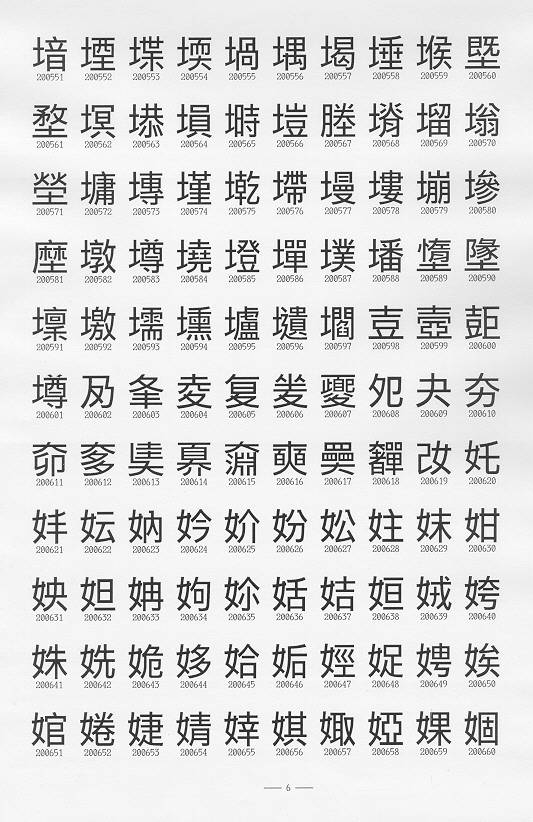 堷堙堞堧堝堣堨埵堠塈
200551 200552 200553 200554 200555 200556 200557 200558 200559 200560
堥塓塨塤塒塏塍塉塯塕
200561 200562 200563 200564 200565 200566 200567 200568 200569 200570
塋墉塼墐墘墆墁塿塴墋
200571 200572 200573 200574 200575 200576 200577 200578 200579 200580
墪墩墫墝墱墠墣墦墯墬
200581 200582 200583 200584 200585 200586 200587 200588 200589 200590
壈墽壖壎壚壝壛壴壺
200591 200592 200593 200594 200595 200596 200597 200598 200599 200600
墫夃夆夌复夎夔夗夬夯
200601 200602 200603 200604 200605 200606 200607 200608 200609 200610
奅奓奊奡奫奭奰奲改奼
200611 200612 200613 200614 200615 200616 200617 200618 200619 200620
妦妘妠妗妎妢妐妵妺姏
200621 200622 200623 200624 200625 200626 200627 200628 200629 200630
姎妲姌姁妳姡姞姮娀姱
200631 200632 200633 200634 200635 200636 200637 200638 200639 200640
姝姺姽姼姶姤娙娖娉娭
200641 200642 200643 200644 200645 200646 200647 200648 200649 200650
婠婘婕婧婞娸娵婭婐婟
200651 200652 200653 200654 200655 200656 200657 200658 200659 200660
— 6 —